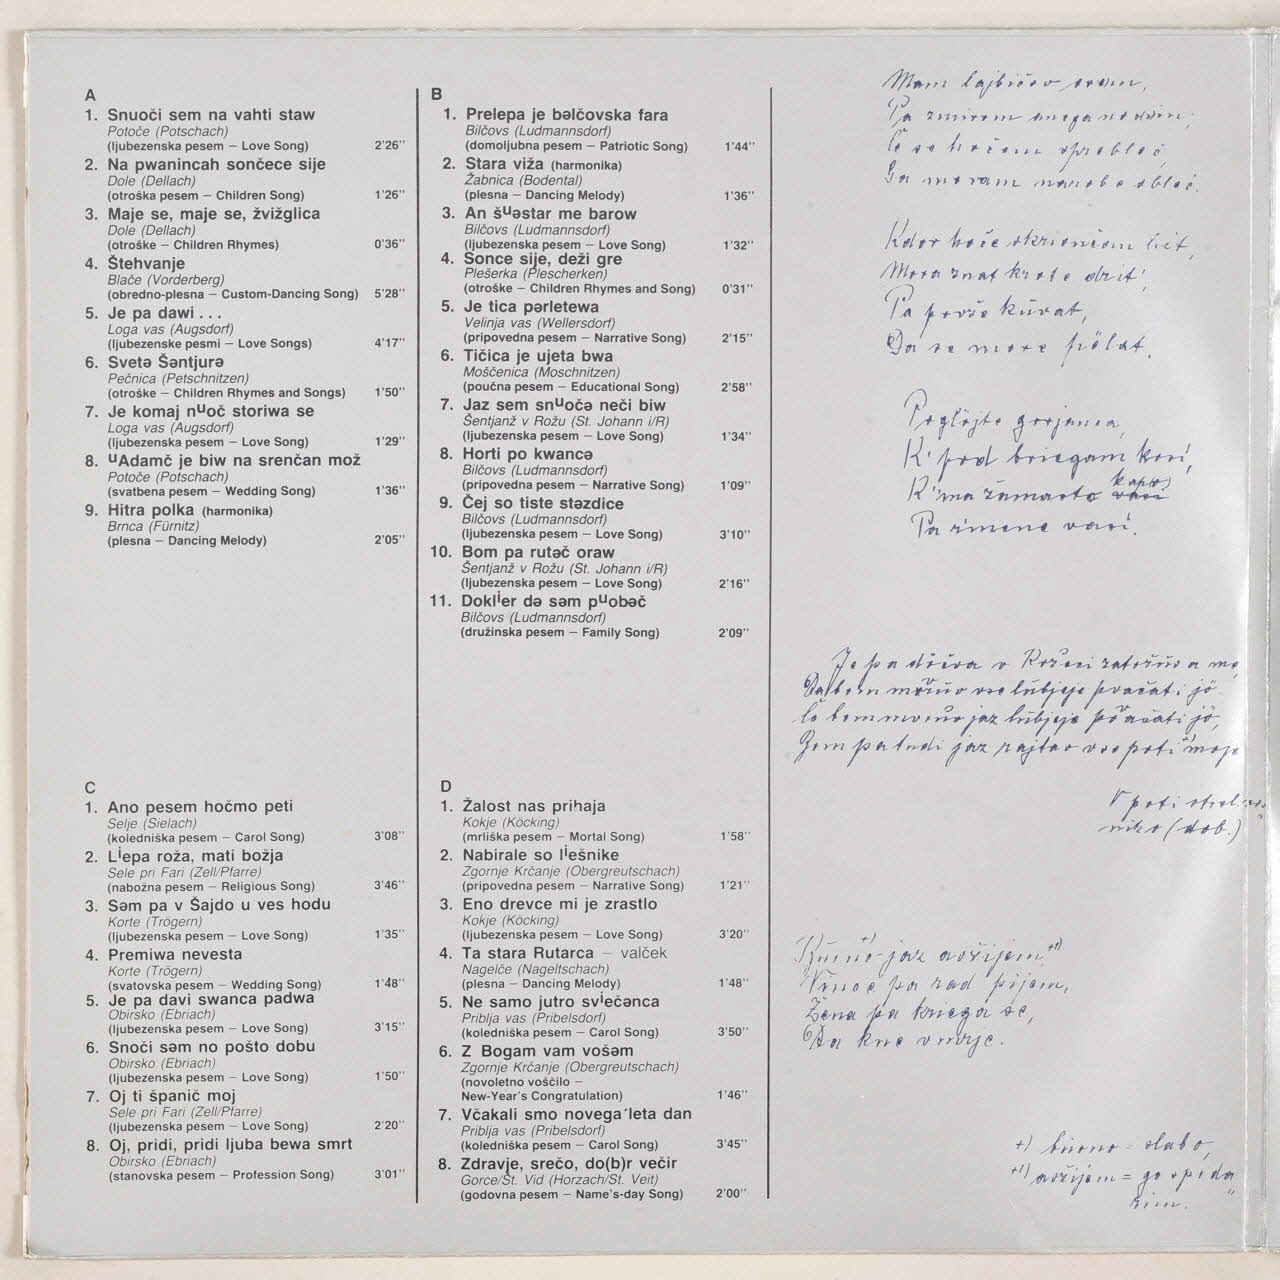 A
1. Snuoči sem na vahti staw
Potoče (Potschach)
(ljubezenska pesem – Love Song) 2'26''
2. Na pwanincah sončece sije
Dole (Dellach)
(otroška pesem – Children Song) 1'26''
3. Maje se, maje se, žvižglica
Dole (Dellach)
(otroške – Children Rhymes) 0'36''
4. Štehvanje
Blače (Vorderberg)
(obredno-plesna – Custom-Dancing Song) 5'28''
5. Je pa dawi . . .
Loga vas (Augsdorf)
(ljubezenske pesmi – Love Songs) 4'17''
6. Svetə Šəntjurə
Pečnica (Petschnitzen)
(otroške – Children Rhymes and Songs) 1'50''
7. Je komaj nᵘoč storiwa se
Loga vas (Augsdorf)
(ljubezenska pesem – Love Song) 1'29''
8. ᵘAdamč je biw na srenčan mož
Potoče (Potschach)
(svatbena pesem – Wedding Song) 1'36''
9. Hitra polka (harmonika)
Brnca (Fürnitz)
(plesna – Dancing Melody) 2'05''
B
1. Prelepa je bəlčovska fara
Bilčovs (Ludmannsdorf)
(domoljubna pesem – Patriotic Song) 1'44''
2. Stara viža (harmonika)
Žabnica (Bodental)
(plesna – Dancing Melody) 1'36''
3. An šᵘəstar me barow
Bilčovs (Ludmannsdorf)
(ljubezenska pesem – Love Song) 1'32''
4. Sonce sije, deži gre
Plešerka (Plescherken)
(otroške – Children Rhymes and Song) 0'31''
5. Je tica pərletewa
Velinja vas (Wellersdorf)
(pripovedna pesem – Narrative Song) 2'15''
6. Tičica je ujeta bwa
Moščenica (Moschnitzen)
(poučna pesem – Educational Song) 2'58''
7. Jaz sem snᵘočə neči biw
Šentjanž v Rožu (St. Johann i/R)
(ljubezenska pesem – Love Song) 1'34''
8. Horti po kwancə
Bilčovs (Ludmannsdorf)
(pripovedna pesem – Narrative Song) 1'09''
9. Čej so tiste stəzdice
Bilčovs (Ludmannsdorf)
(ljubezenska pesem – Love Song) 3'10''
10. Bom pa rutəč oraw
Šentjanž v Rožu (St. Johann i/R)
(ljubezenska pesem – Love Song) 2'16''
11. Doklⁱer də səm pᵘobəč
Bilčovs (Ludmannsdorf)
(družinska pesem – Family Song) 2'09''
C
1. Ano pesem hočmo peti
Selje (Sielach)
(koledniška pesem – Carol Song) 3'08''
2. Lⁱepa roža, mati božja
Sele pri Fari (Zell/Pfarre)
(nabožna pesem – Religious Song) 3'46''
3. Səm pa v Šajdo u ves hodu
Korte (Trögern)
(ljubezenska pesem – Love Song) 1'35''
4. Premiwa nevesta
Korte (Trögern)
(svatovska pesem – Wedding Song) 1'48''
5. Je pa davi swanca padwa
Obirsko (Ebriach)
(ljubezenska pesem – Love Song) 3'15''
6. Snoči səm no pošto dobu
Obirsko (Ebriach)
(ljubezenska pesem – Love Song) 1'50''
7. Oj ti španič moj
Sele pri Fari (Zell/Pfarre)
(ljubezenska pesem – Love Song) 2'20''
8. Oj, pridi, pridi ljuba bewa smrt
Obirsko (Ebriach)
(stanovska pesem – Profession Song) 3'01''
D
1. Žalost nas prihaja
Kokje (Köcking)
(mrliška pesem – Mortal Song) 1'58''
2. Nabirale so lⁱešnike
Zgornje Krčanje (Obergreutschach)
(pripovedna pesem – Narrative Song) 1'21''
3. Eno drevce mi je zrastlo
Kokje (Köcking)
(ljubezenska pesem – Love Song) 3'20''
4. Ta stara Rutarca – valček
Nagelče (Nageltschach)
(plesna – Dancing Melody) 1'48''
5. Ne samo jutro svⁱečənca
Priblja vas (Pribelsdorf)
(koledniška pesem – Carol Song) 3'50''
6. Z Bogam vam vošəm
Zgornje Krčanje (Obergreutschach)
(novoletno voščilo –
New-Year's Congratulation) 1'46''
7. Včakali smo novega´leta dan
Priblja vas (Pribelsdorf)
(koledniška pesem – Carol Song) 3'45''
8. Zdravje, srečo, do(b)r večir
Gorce/Št. Vid (Horzach/St. Veit)
(godovna pesem – Name's-day Song) 2'00''
Mam lajbičov
Pa zmirom
Če se hočem
Da moram narobe obleč.
Kdor hoče
Mora znat krote
Pa kúvat,
Da se more
Poglejte gorjanca,
K' pod briegam
K'ma kapro
Pa zimene
Je pa v
Da bom lúbjeje
Če bom jaz lúbjeje jö,
pa tudi jaz rajtav vse poti moje
V poti
niko (dob.)
jaz +)
pa rad pijem,
Žena pa kriega se,
Da kne vmrje.
+) = slabo,
++) = gospoda
rim.